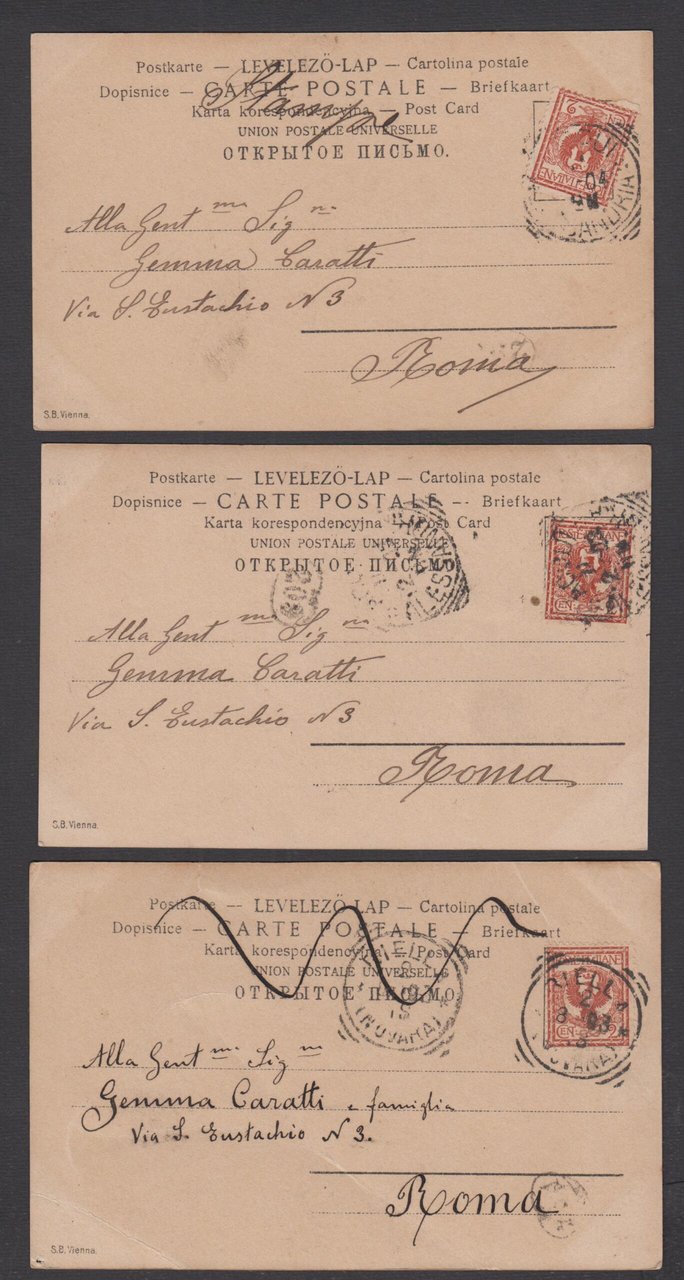 Postkarte — LEVELEZŐ-LAP — Cartolina postale
Dopisnice — CARTE POSTALE — Briefkaart
Karta korespondencyjna — Post Card
UNION POSTALE UNIVERSELLE
ОТКРЫТОЕ ПИСЬМО.
Stampe
2
04
Alla Gent ma Sig na
Gemma Caratti
Via S. Eustachio N 3
Roma
S.B. Vienna.
Postkarte — LEVELEZÖ-LAP — Cartolina postale
Dopisnice — CARTE POSTALE — Briefkaart
Karta korespondencyjna — Post Card
UNION POSTALE UNIVERSELLE
ОТКРЫТОЕ ПИСЬМО.
Alla Gent ma Sig na
Gemma Caratti
Via S. Eustachio N 3
Roma
S.B. Vienna.
Postkarte — LEVELEZÖ-LAP — Cartolina postale
Dopisnice — CARTE POSTALE — Briefkaart
Karta korespondencyjna — Post Card
UNION POSTALE UNIVERSELLE
ОТКРЫТОЕ ПИСЬМО.
BIELLA
(NOVARA)
BIELLA
2
8 03
(NOVARA)
Alla Gent ma Sig na
Gemma Caratti e famiglia
Via S. Eustachio N 3.
Roma
S.B. Vienna.